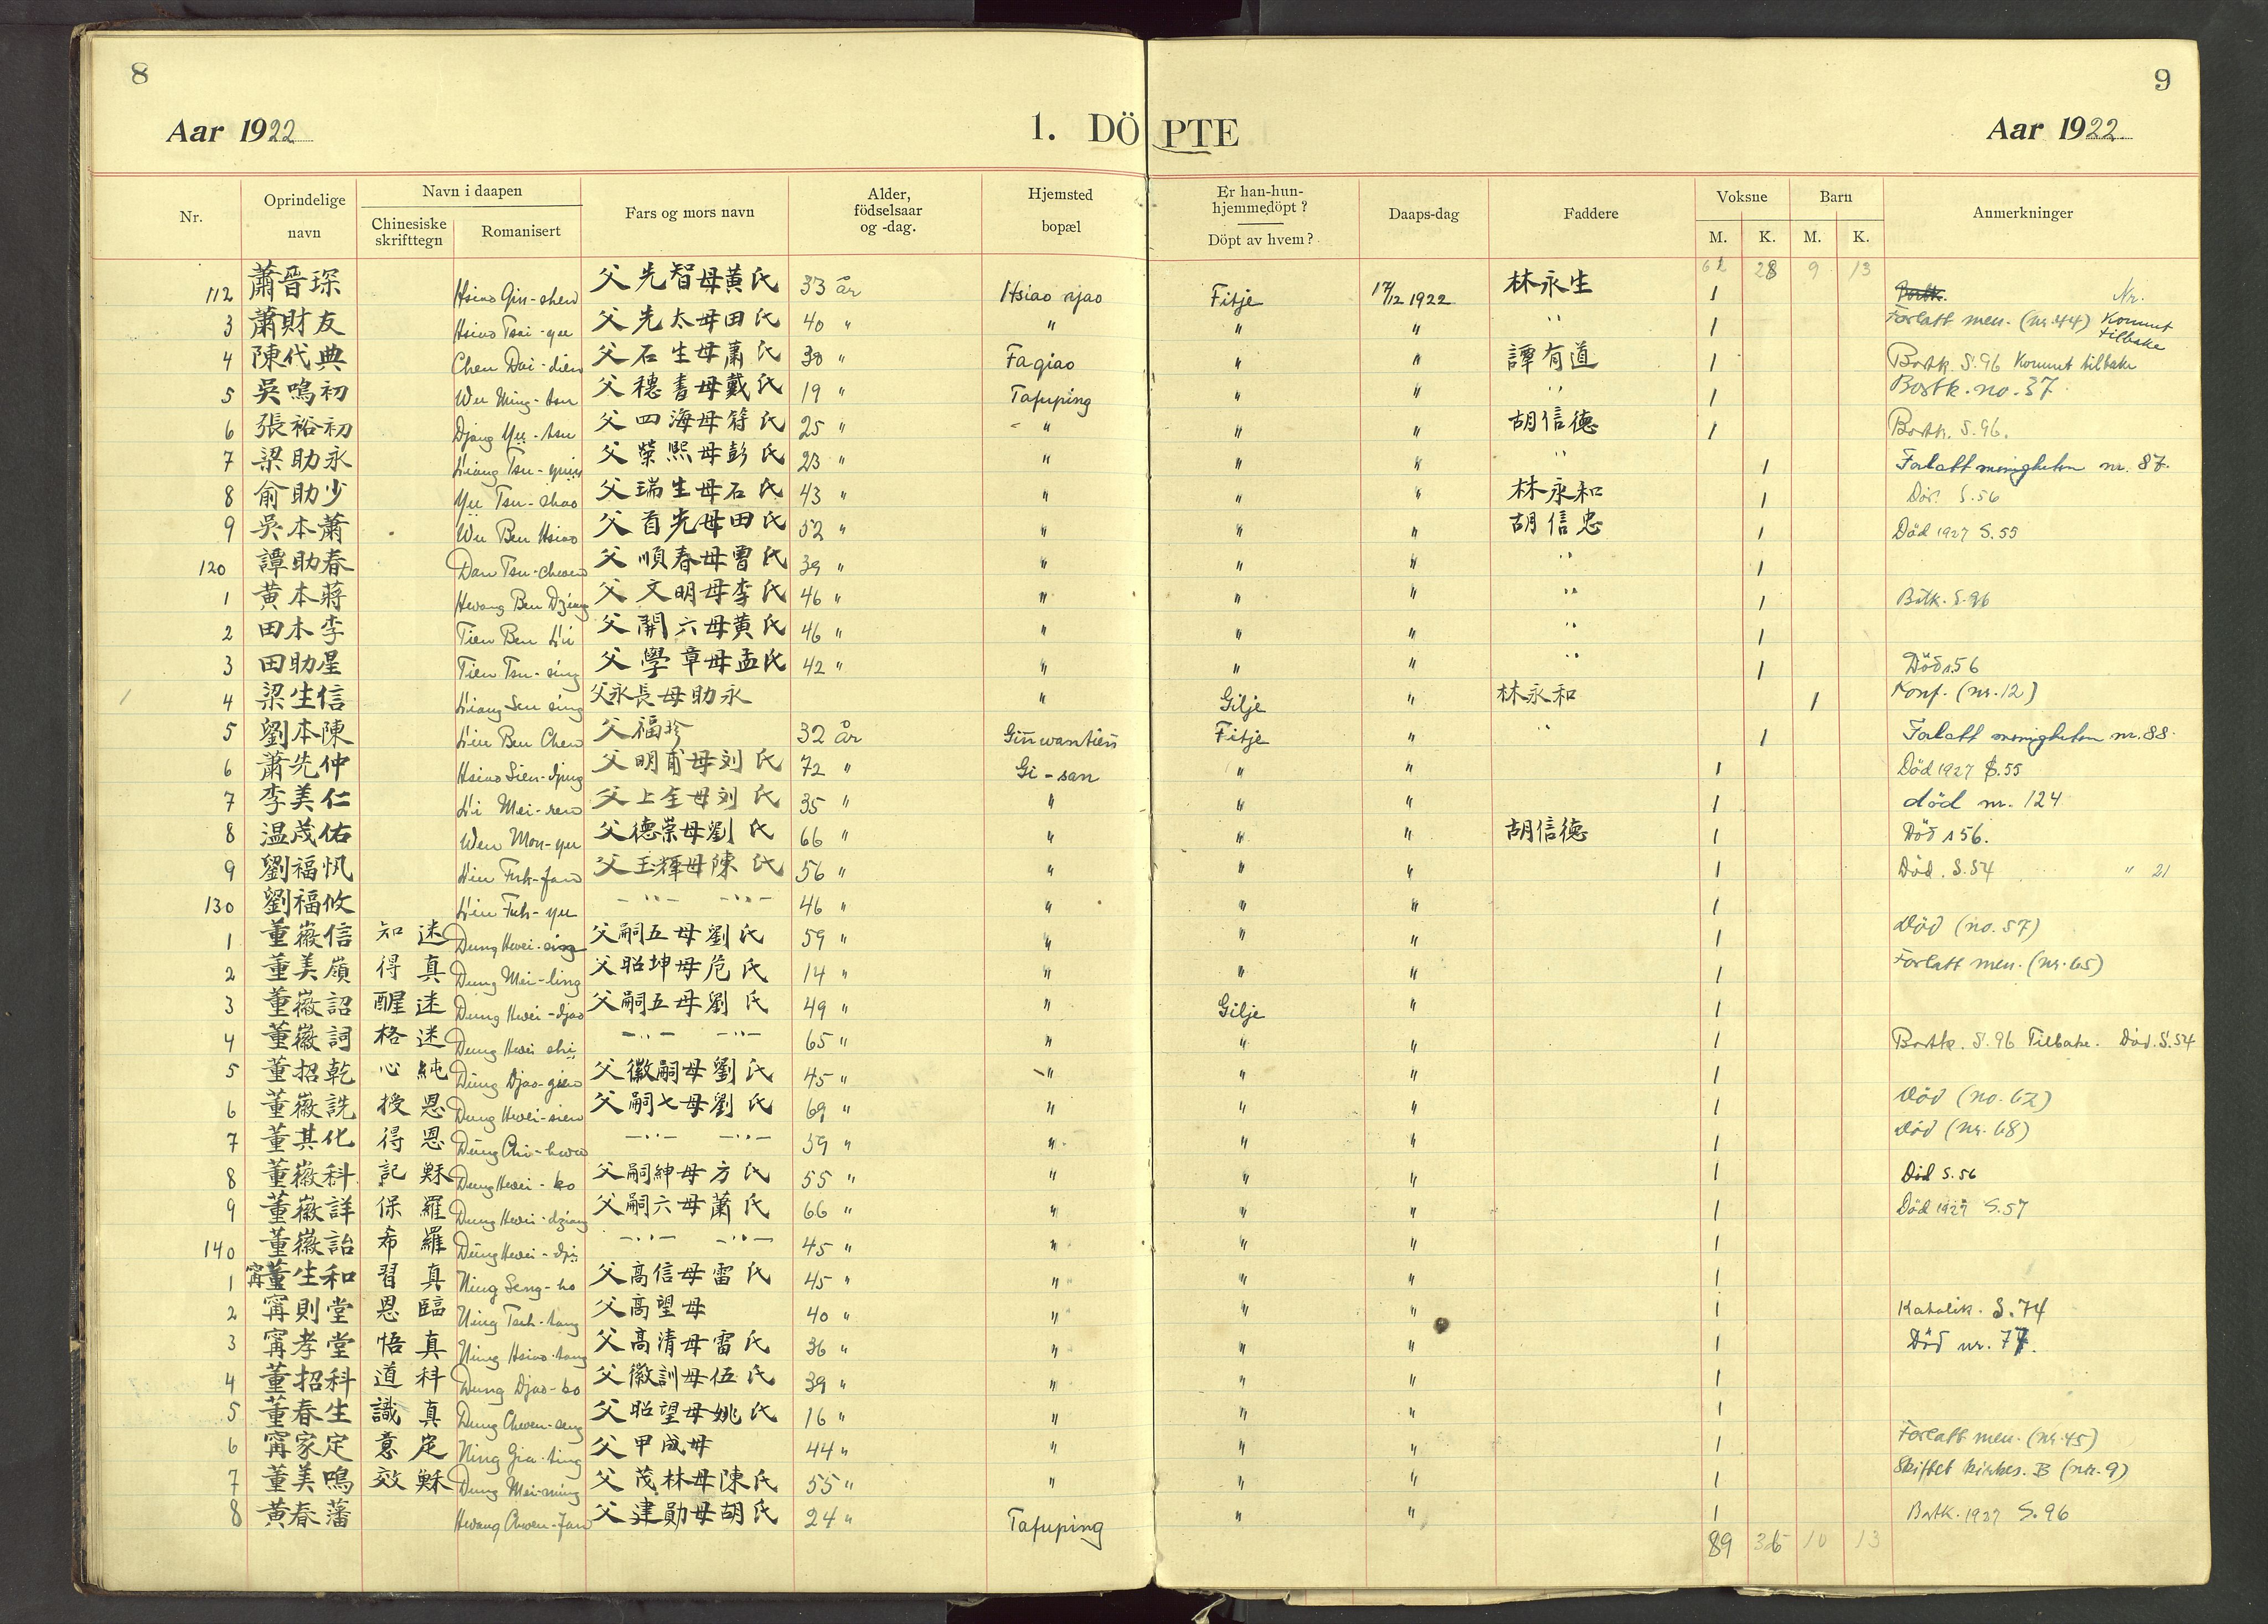 8
9
Aar 1922
1. DÖPTE
Aar 1922
Nr.
Oprindelige navn
Navn i daapen
Chinesiske skrifttegn
Romanisert
Fars og mors navn
Alder, födselsaar og -dag.
Hjemsted bopæl
Er han-hun-hjemmedöpt?
Döpt av hvem?
Daaps-dag
Faddere
Voksne
Barn
M. K. M. K.
Anmerkninger
28 9 13
112 蕭晉琛 Hsiao Gin-shen 父先智母黃氏 33 år Hsiao njao Fitje 17/12 1922 林永生 1 Nr.
3 蕭財友 Hsiao Tsai-yu 父先太母田氏 40 " " " " " 1 Forlatt men. (nr. 44) Kommet tilbake
4 陳代典 Chen Dai-dien 父石生母蕭氏 38 " Faqiao " " 譚有道 1 Bortk. S.96 Kommet tilbake
5 吳鳴初 Wu Ming-tsu 父穗書母戴氏 19 " Tafuping " " " 1 Bortk. no. 37
6 張裕初 Djang Yü-tsu 父四海母符氏 25 " " " " 胡信德 1 Bortk. S.96.
7 梁助永 Liang Tsu-yuin 父榮熙母彭氏 23 " " " " " 1 Forlatt menigheten nr. 87.
8 俞助少 Yü Tsu-shao 父瑞生母石氏 43 " " " " 林永和 1 Död S.56
9 吳本蕭 Wu Ben Hsiao 父首先母田氏 52 " " " " 胡信忠 1 Död 1927 S.55
120 譚助春 Dan Tsu-chwen 父順春母曹氏 39 " " " " " 1
1 黃本蔣 Hwang Ben Dziang 父文明母李氏 46 " " " " " 1 Bortk. S.96
2 田本李 Tien Ben Li 父開六母黃氏 46 " " " " " 1
3 田助星 Tien Tsu-sing 父學章母孟氏 42 " " " " " 1 Död s 56
1 4 梁生信 Liang Sen sing 父永長母助永 " Gilje " 林永和 1 Konf. (nr. 12)
5 劉本陳 Liu Ben Chen 父福珍 32 år Giuwantien Fitje " " 1 Forlatt menigheten nr. 88.
6 蕭先仲 Hsiao Sien-djung 父明甫母刘氏 72 " Gi-san " " 1 Död 1927 S.55
7 李美仁 Li Mei-ren 父上金母刘氏 35 " " " " 1 död nr. 124
8 温茂佑 Wen Mou-yu 父德榮母劉氏 66 " " " " 胡信德 1 Död s 56.
9 劉福帆 Liu Fuh-fan 父玉輝母陳氏 56 " " " " 1 Död. S.54 " 21
130 劉福攸 Liu Fuh-yu -"- -"- 46 " " " " 1
1 董徽信 知迷 Dung Hwei-sing 父嗣五母劉氏 59 " " " " 1 Död (no. 57)
2 董美嶺 得真 Dung Mei-ling 父昭坤母危氏 14 " " " " 1 Forlatt men. (nr. 65)
3 董徽詔 醒迷 Dung Hwei-djao 父嗣五母劉氏 49 " " Gilje " 1
4 董徽詞 格迷 Dung Hwei chï -"- -"- 65 " " " " 1 Bortk. S.96 Tilbake. Död. S.54
5 董招乾 心純 Dung Djao-gien 父徽嗣母劉氏 45 " " " " 1
6 董徽詵 授恩 Dung Hwei-sien 父嗣七母劉氏 69 " " " " 1 Död (no. 62)
7 董其化 得恩 Dung Chi-hwa -"- -"- 59 " " " " 1 Död (nr. 68)
8 董徽科 記穌 Dung Hwei-ko 父嗣紳母方氏 55 " " " " 1 Död S.56
9 董徽詳 保羅 Dung Hwei-dziang 父嗣六母蕭氏 66 " " " " 1 Död 1927 S.57
140 董徽詒 希羅 Dung Hwei-djï -"- -"- 45 " " " " 1
1 甯生和 習真 Ning Seng-ho 父高信母雷氏 45 " " " " 1
2 甯則堂 恩臨 Ning Tseh-tang 父高望母 40 " " " " 1 Katolik. S.74
3 甯孝堂 悟真 Ning Hsiao-tang 父高清母雷氏 36 " " " " 1 Död nr. 77.
4 董招科 道科 Dung Djao-ko 父徽訓母伍氏 39 " " " " 1
5 董春生 識真 Dung Chwen-seng 父昭望母姚氏 16 " " " " 1
6 甯家定 意定 Ning Gia-ting 父甲成母 44 " " " " 1 Forlatt men. (nr. 45)
7 董美鳴 效穌 Dung Mei-ming 父茂林母陳氏 55 " " " " 1 Skiftet kirkes. B (nr. 9)
8 黃春藩 Hwang Chwen-fan 父建勛母胡氏 24 " Tafuping " " 1 Bortk. 1927 S.96
89 36 10 13